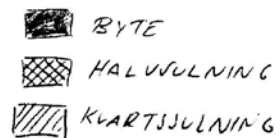 BYTE
HALVSULNING
KVARTSSULNING